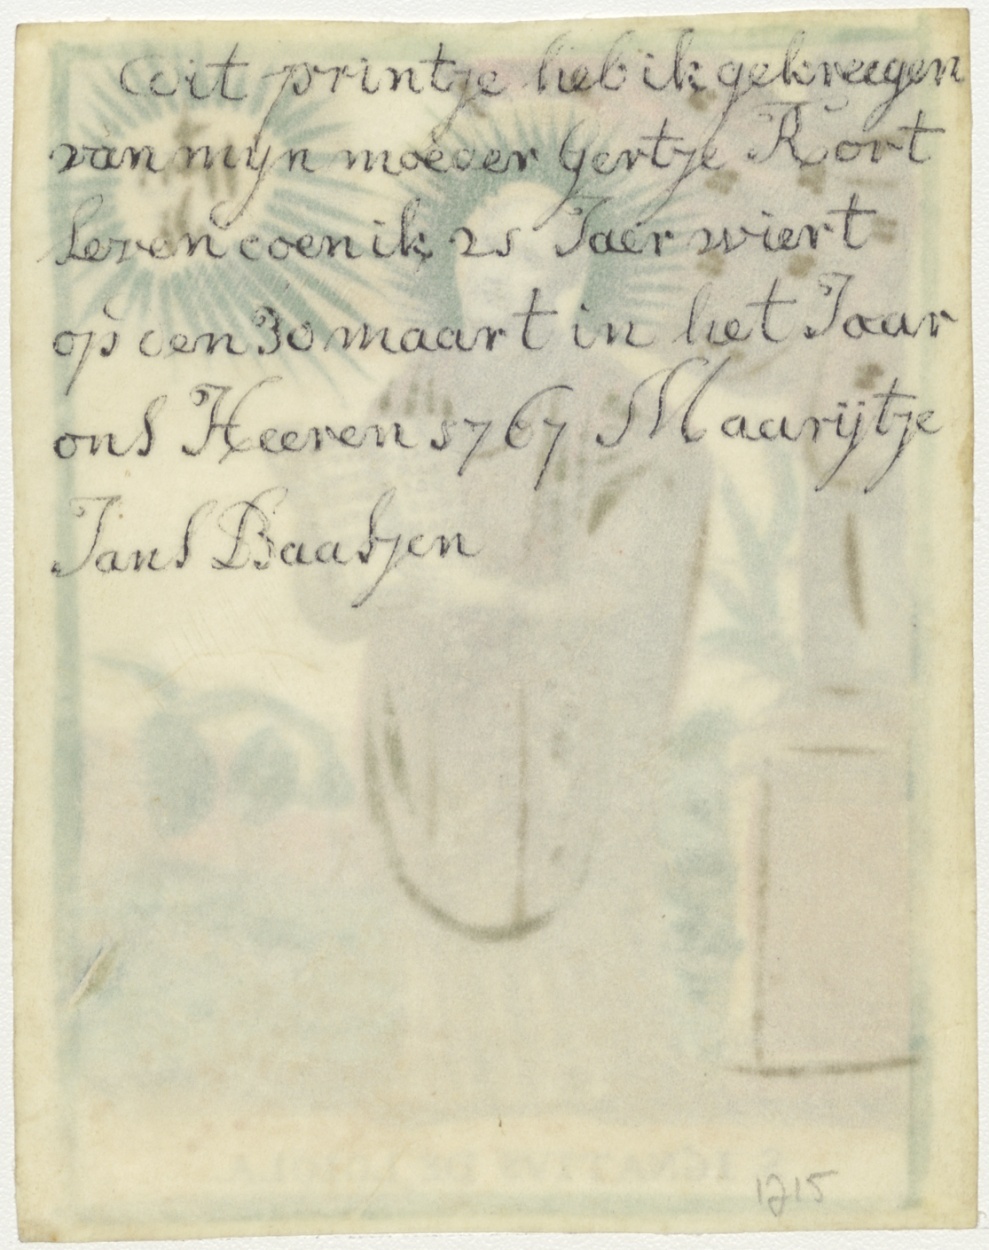 dit printje heb ik gekreegen
van myn moeder Gertje Kort
Leven doen ik 21 Jaer wiert
op den 30 maart in het Jaar
ons Heeren 1767 Maarijtje
Jans Baasjen
S. IGNATIUS DE LOIOLA.
1215